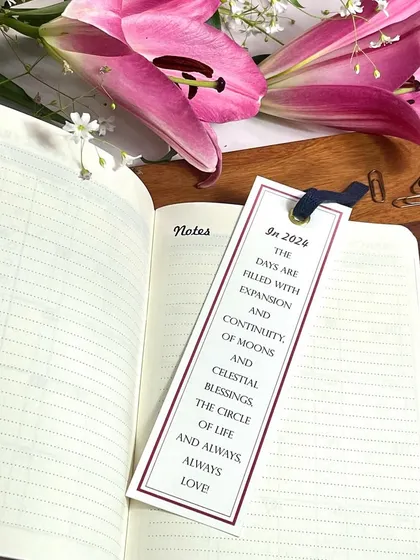 Notes
In 2024
THE
DAYS ARE
FILLED WITH
EXPANSION
AND
CONTINUITY,
OF MOONS
AND
CELESTIAL
BLESSINGS,
THE CIRCLE
OF LIFE
AND ALWAYS,
ALWAYS
LOVE!